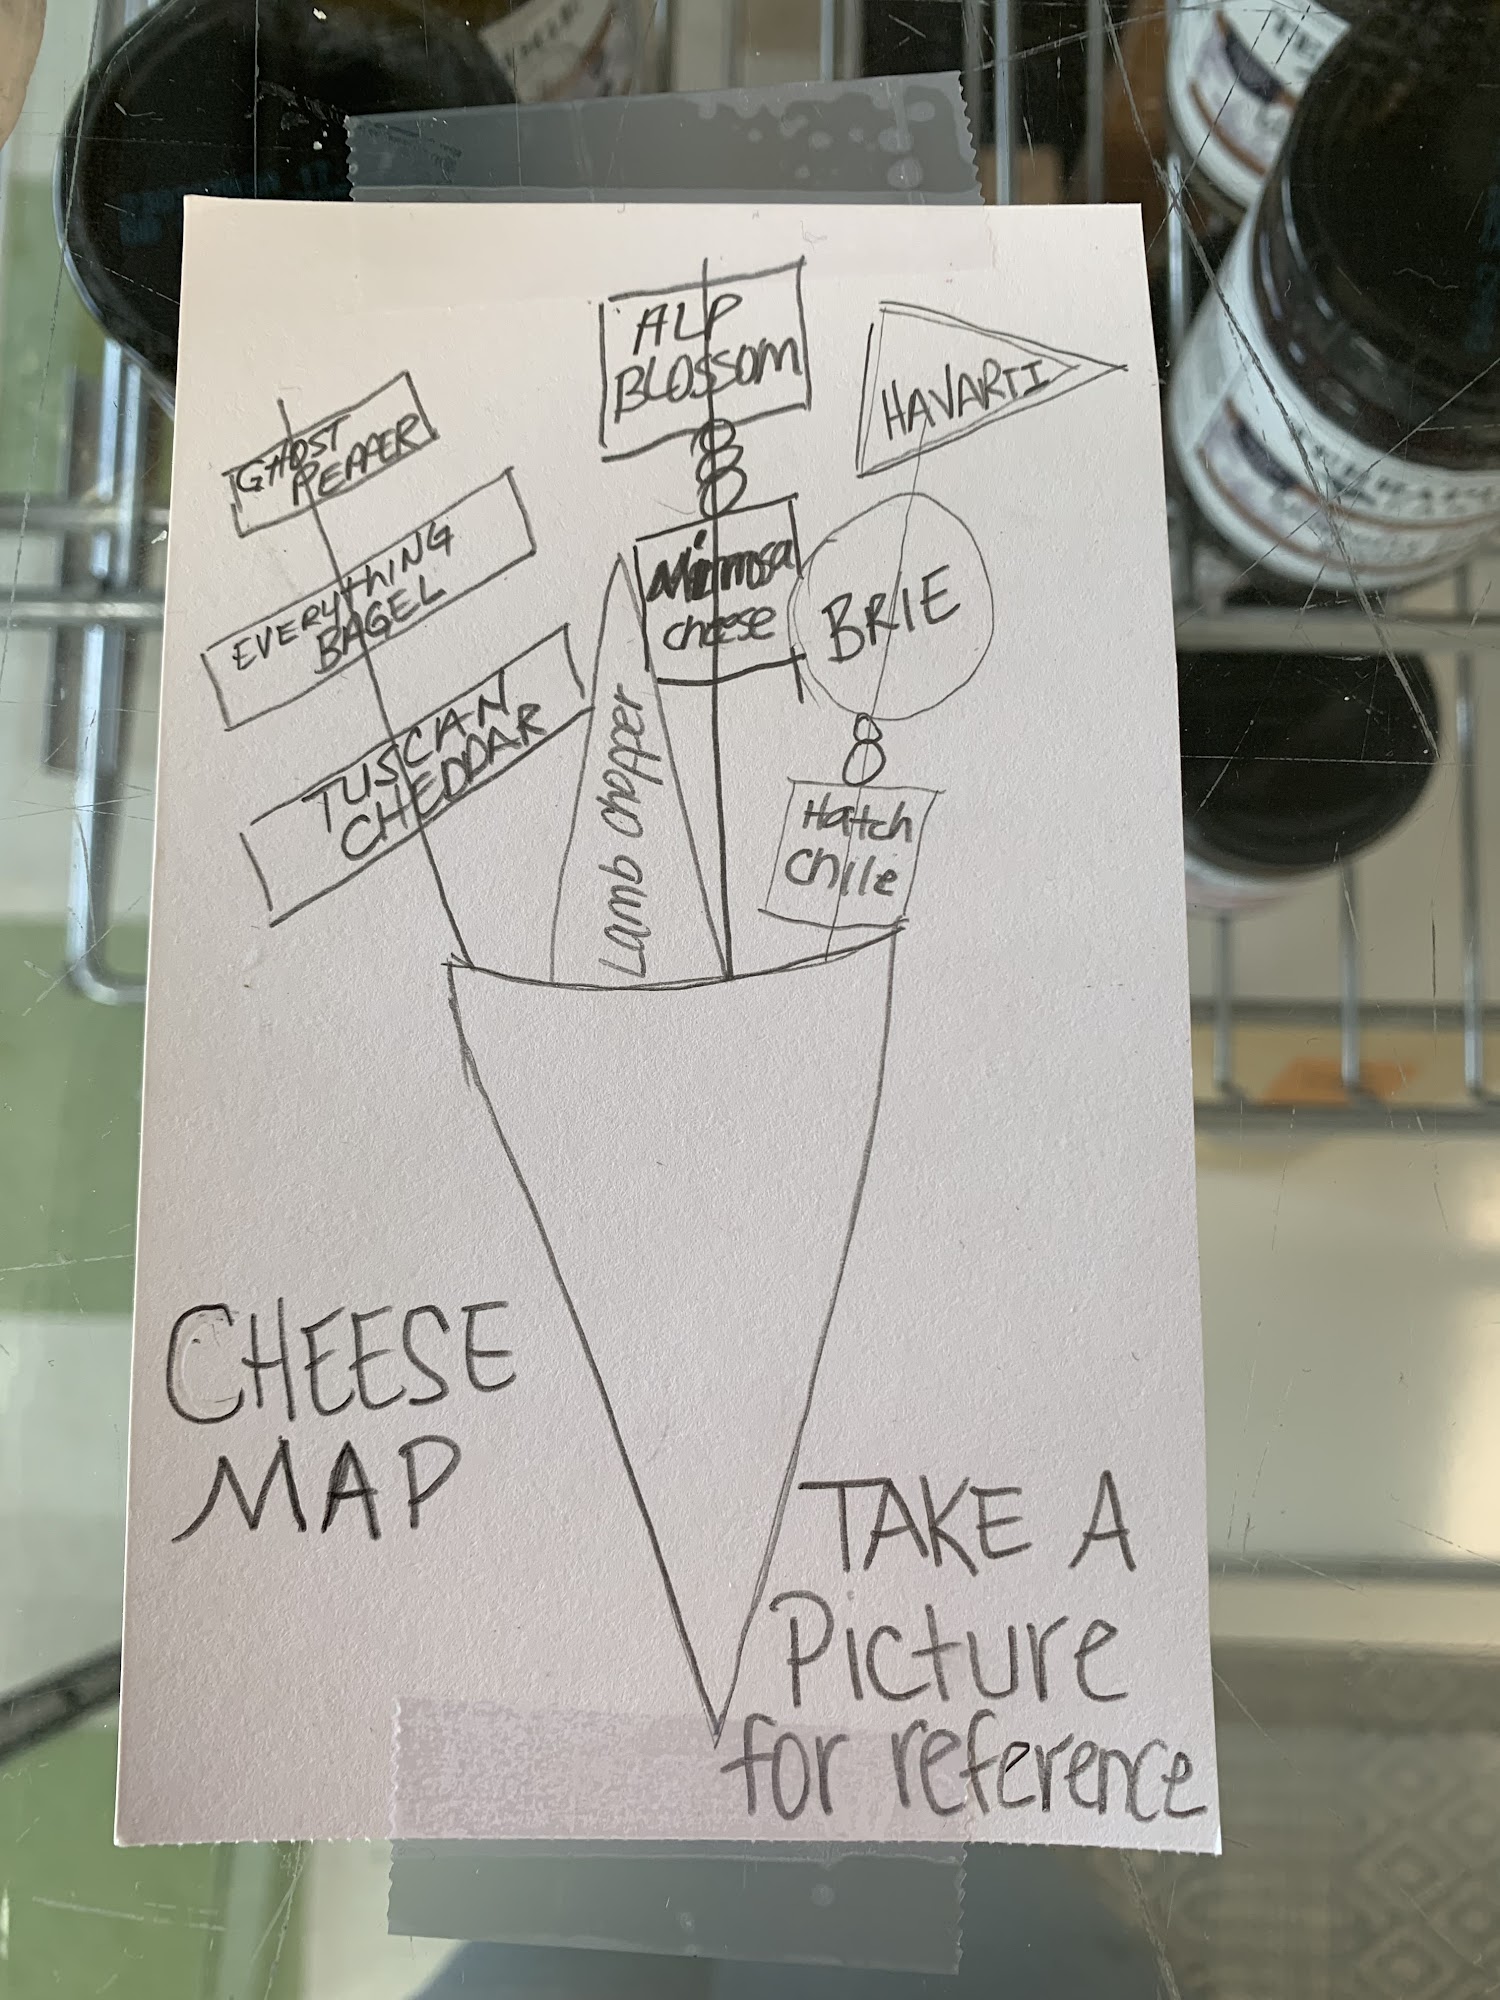 ALP
BLOSSOM
HAVARTI
GHOST
PEPPER
EVERYTHING
BAGEL
Mimosa
cheese
BRIE
TUSCAN
CHEDDAR
Lamb chopper
Hatch
Chile
CHEESE
MAP
TAKE A
Picture
for reference